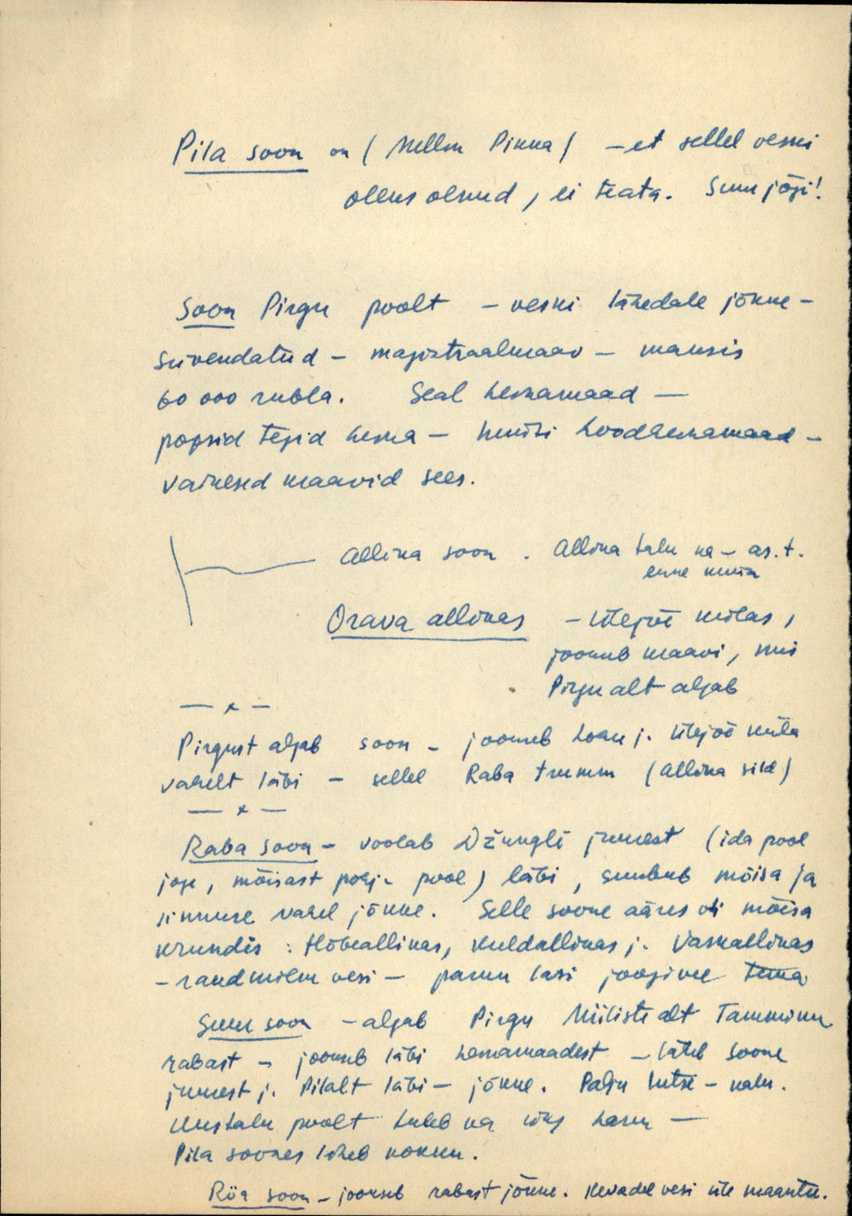 Pila soon on (Mellin Pinna) – et sellel veski
olles olnud, ei teata. Suur jõgi!
Soon Pirgu poolt – veski lähedale jõkke –
süvendatud – magistraalkraav – maksis
60 000 rubla. Seal heinamaad —
popsid tegid heina – hundi loodheinamaad –
väikesed kraavid sees.
Allika soon . Allika talu ka – as. t.
enne
Orava allikas – Ülejõe külas,
jookseb kraavi, mis
Pirgu alt algab
— x —
Pirgust algab soon – jookseb Loau j. Ülejõe küla
vahelt läbi – sellel Raba trumm (Allika sild)
— x —
Raba soon – voolab Džungli juurest (ida pool
jõge, mõisast põhj. pool) läbi, suubub mõisa ja
vahel jõkke. Selle soone ääres oli mõisa
krundis : Hõbeallikas, Kuldallikas j. Vaskallikas
– raudkülm vesi – parun lasi joogivee tema
Suur soon – algab Pirgu Niilistealt Tammiku
rabast – jookseb läbi heinamaadest – läheb Soone
juurest j. Pilalt läbi – jõkke. Palju lutse – kalu.
Uustalu poolt tuleb ka üks haru —
Pila soones läheb kokku.
Rüa soon – jookseb rabast jõkke. Kevadel vesi üle maantee.